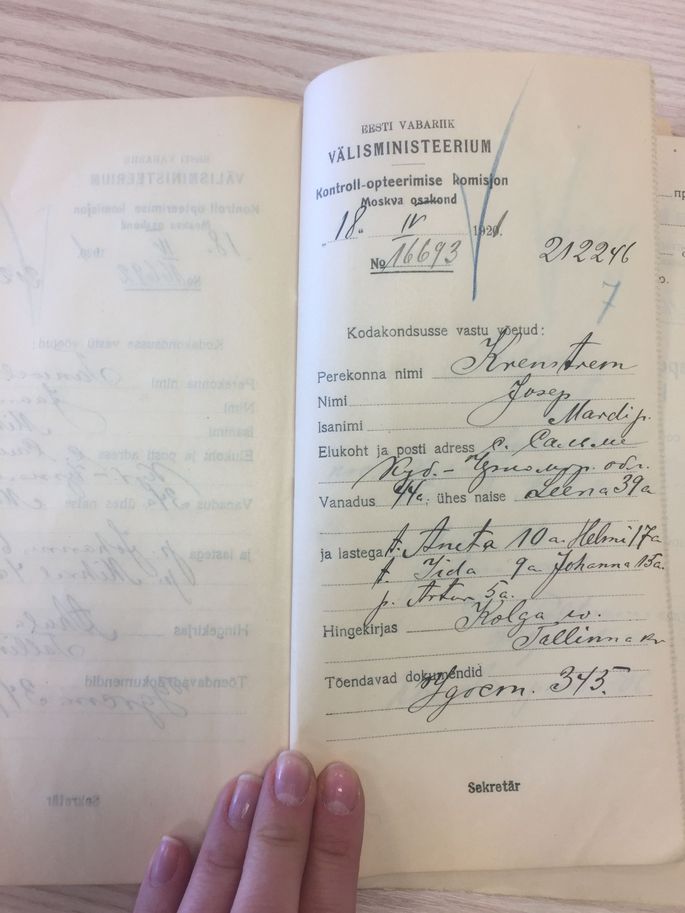 EESTI VABARIIK
VÄLISMINISTEERIUM
Kontroll-opteerimise komisjon
Moskva osakond
"18" IV 1921
No 16693
212246
7
Kodakondsusse vastu võetud:
Perekonna nimi Krenstrem
Nimi Josep
Isanimi Mardi p.
Elukoht ja posti adress с. Сальме
Куб.-Черномор. обл.
Vanadus 44 a. ühes naise Leena 39 a
ja lastega t. Aneta 10 a. Helmi 17 a
t. Iida 9 a. Johanna 15 a.
p. Artur 5 a.
Hingekirjas Kolga v.
Tallinna kr
Tõendavad dokumendid
Удост. 343
Sekretär